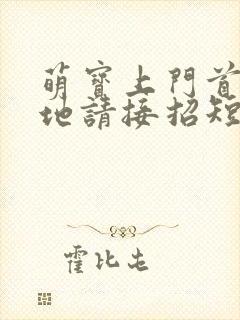 萌寶上門首
地請接招短
霍比屯